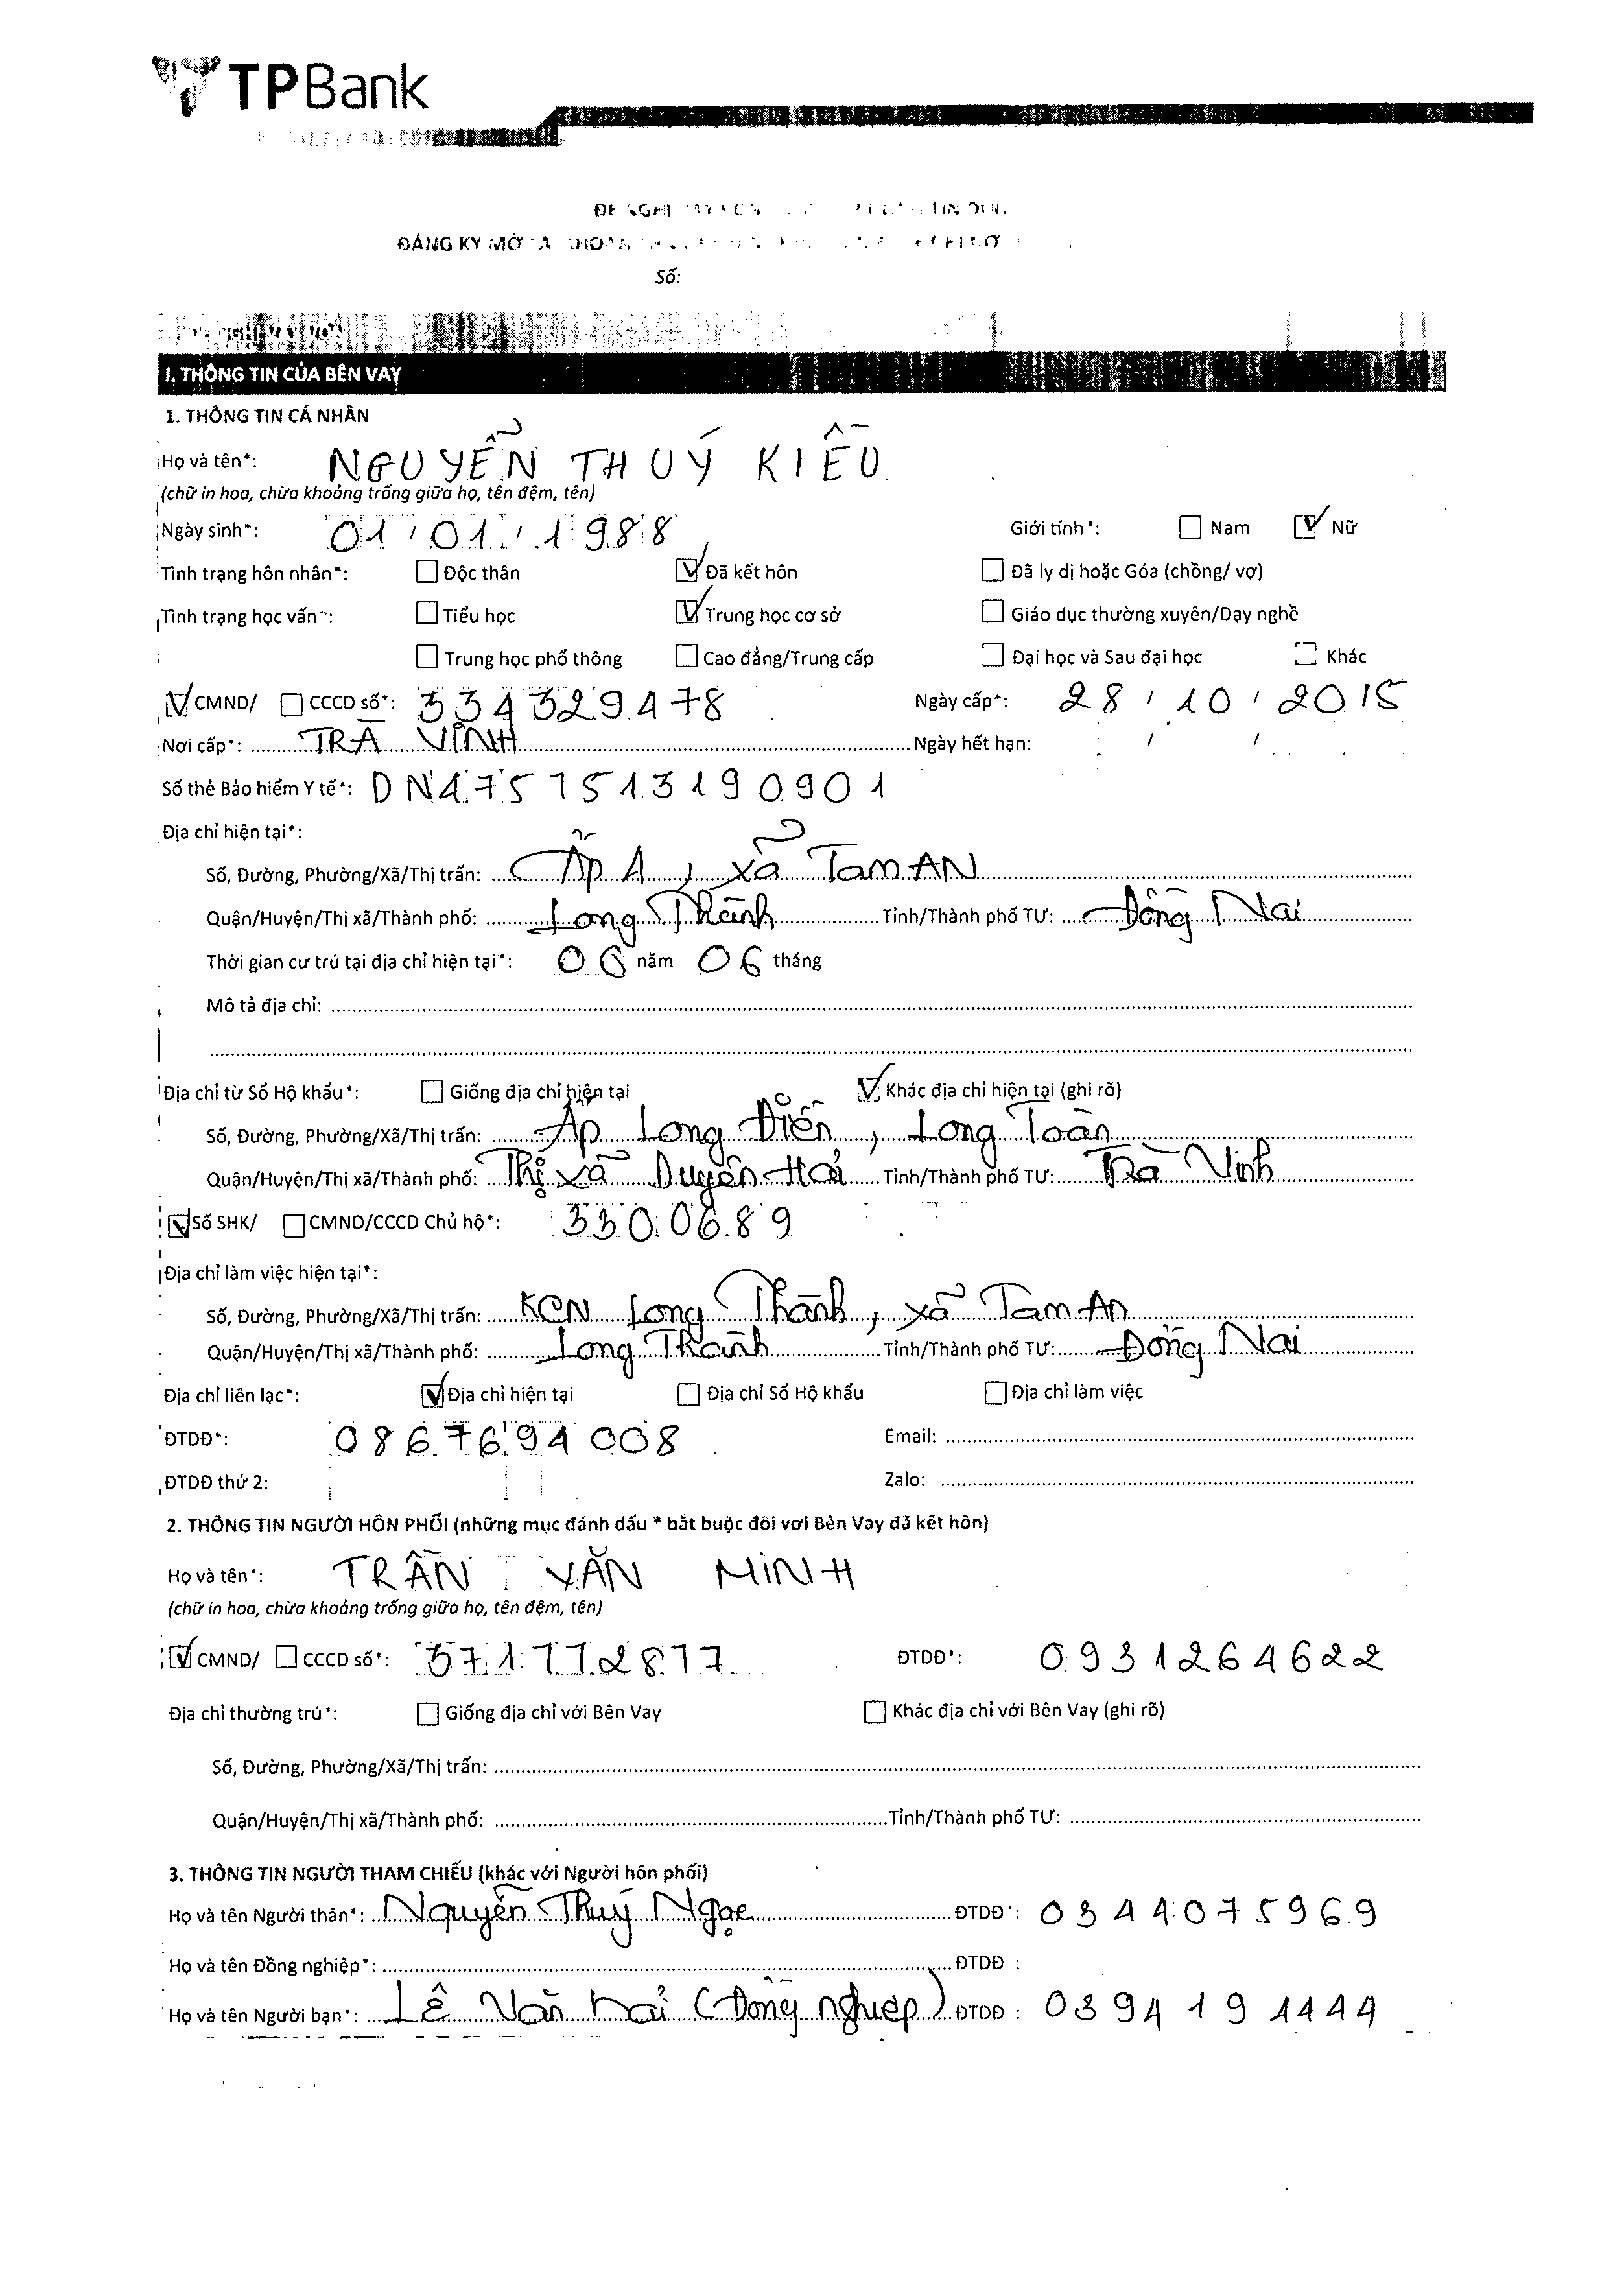 TPBank
Số:
I. THÔNG TIN CỦA BÊN VAY
1. THÔNG TIN CÁ NHÂN
Họ và tên*: NGUYỄN THUÝ KIỀU
(chữ in hoa, chừa khoảng trống giữa họ, tên đệm, tên)
Ngày sinh*: 01 / 01 / 1988 Giới tính*: Nam Nữ
Tình trạng hôn nhân*: Độc thân Đã kết hôn Đã ly dị hoặc Góa (chồng/ vợ)
Tình trạng học vấn*: Tiểu học Trung học cơ sở Giáo dục thường xuyên/Dạy nghề
Trung học phổ thông Cao đẳng/Trung cấp Đại học và Sau đại học Khác
CMND/ CCCD số*: 334329478 Ngày cấp*: 28 / 10 / 2015
Nơi cấp*: TRÀ VINH Ngày hết hạn: / /
Số thẻ Bảo hiểm Y tế*: DN4757513190901
Địa chỉ hiện tại*:
Số, Đường, Phường/Xã/Thị trấn: Ấp 1, xã Tam AN
Quận/Huyện/Thị xã/Thành phố: Long Thành Tỉnh/Thành phố TƯ: Đồng Nai
Thời gian cư trú tại địa chỉ hiện tại*: 06 năm 06 tháng
Mô tả địa chỉ:
Địa chỉ từ Sổ Hộ khẩu*: Giống địa chỉ hiện tại Khác địa chỉ hiện tại (ghi rõ)
Số, Đường, Phường/Xã/Thị trấn: Ấp Long Điền, Long Toàn
Quận/Huyện/Thị xã/Thành phố: Thị xã Duyên Hải Tỉnh/Thành phố TƯ: Trà Vinh
Số SHK/ CMND/CCCD Chủ hộ*: 3300689
Địa chỉ làm việc hiện tại*:
Số, Đường, Phường/Xã/Thị trấn: KCN Long Thành, xã Tam An
Quận/Huyện/Thị xã/Thành phố: Long Thành Tỉnh/Thành phố TƯ: Đồng Nai
Địa chỉ liên lạc*: Địa chỉ hiện tại Địa chỉ Sổ Hộ khẩu Địa chỉ làm việc
ĐTDĐ*: 0867694008 Email:
ĐTDĐ thứ 2: Zalo:
2. THÔNG TIN NGƯỜI HÔN PHỐI (những mục đánh dấu * bắt buộc đối với Bên Vay đã kết hôn)
Họ và tên*: TRẦN VĂN MINH
(chữ in hoa, chừa khoảng trống giữa họ, tên đệm, tên)
CMND/ CCCD số*: 371772877 ĐTDĐ*: 0931264622
Địa chỉ thường trú*: Giống địa chỉ với Bên Vay Khác địa chỉ với Bên Vay (ghi rõ)
Số, Đường, Phường/Xã/Thị trấn:
Quận/Huyện/Thị xã/Thành phố: Tỉnh/Thành phố TƯ:
3. THÔNG TIN NGƯỜI THAM CHIẾU (khác với Người hôn phối)
Họ và tên Người thân*: Nguyễn Thuý Ngọc ĐTDĐ*: 0344075969
Họ và tên Đồng nghiệp*: ĐTDĐ :
Họ và tên Người bạn*: Lê Văn Hải (Đồng nghiệp) ĐTDĐ : 0394191444